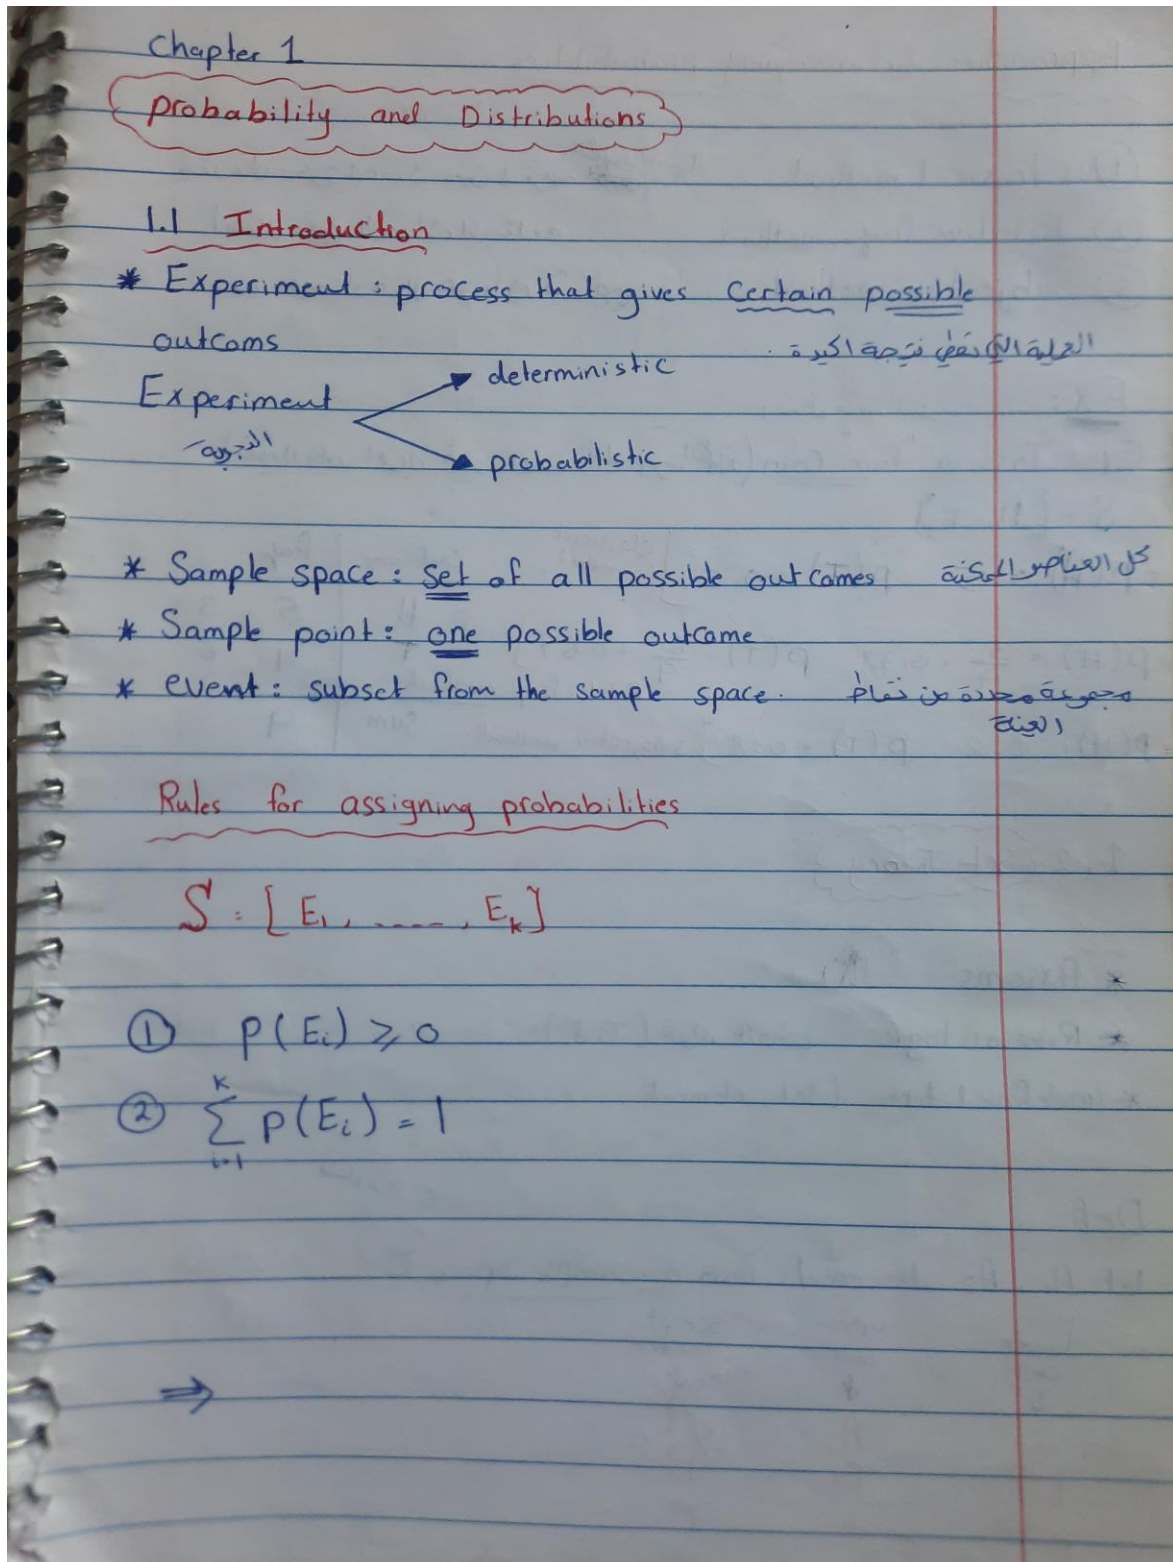 Chapter 1
Probability and Distributions
1.1 Introduction
* Experiment : process that gives Certain possible
outcoms
العملية التي تعطي نتيجة اكيدة .
deterministic
Experiment
التجربة
probabilistic
* Sample space : set of all possible outcomes كل العناصر الممكنة
* Sample point : one possible outcome
* event : subset from the sample space . مجموعة محددة من نقاط
العينة
Rules for assigning probabilities
S = [ E₁, ....., Eₖ ]
① P(Eᵢ) ⩾ 0
② ∑ᵢ₌₁ᵏ P(Eᵢ) = 1
⇒